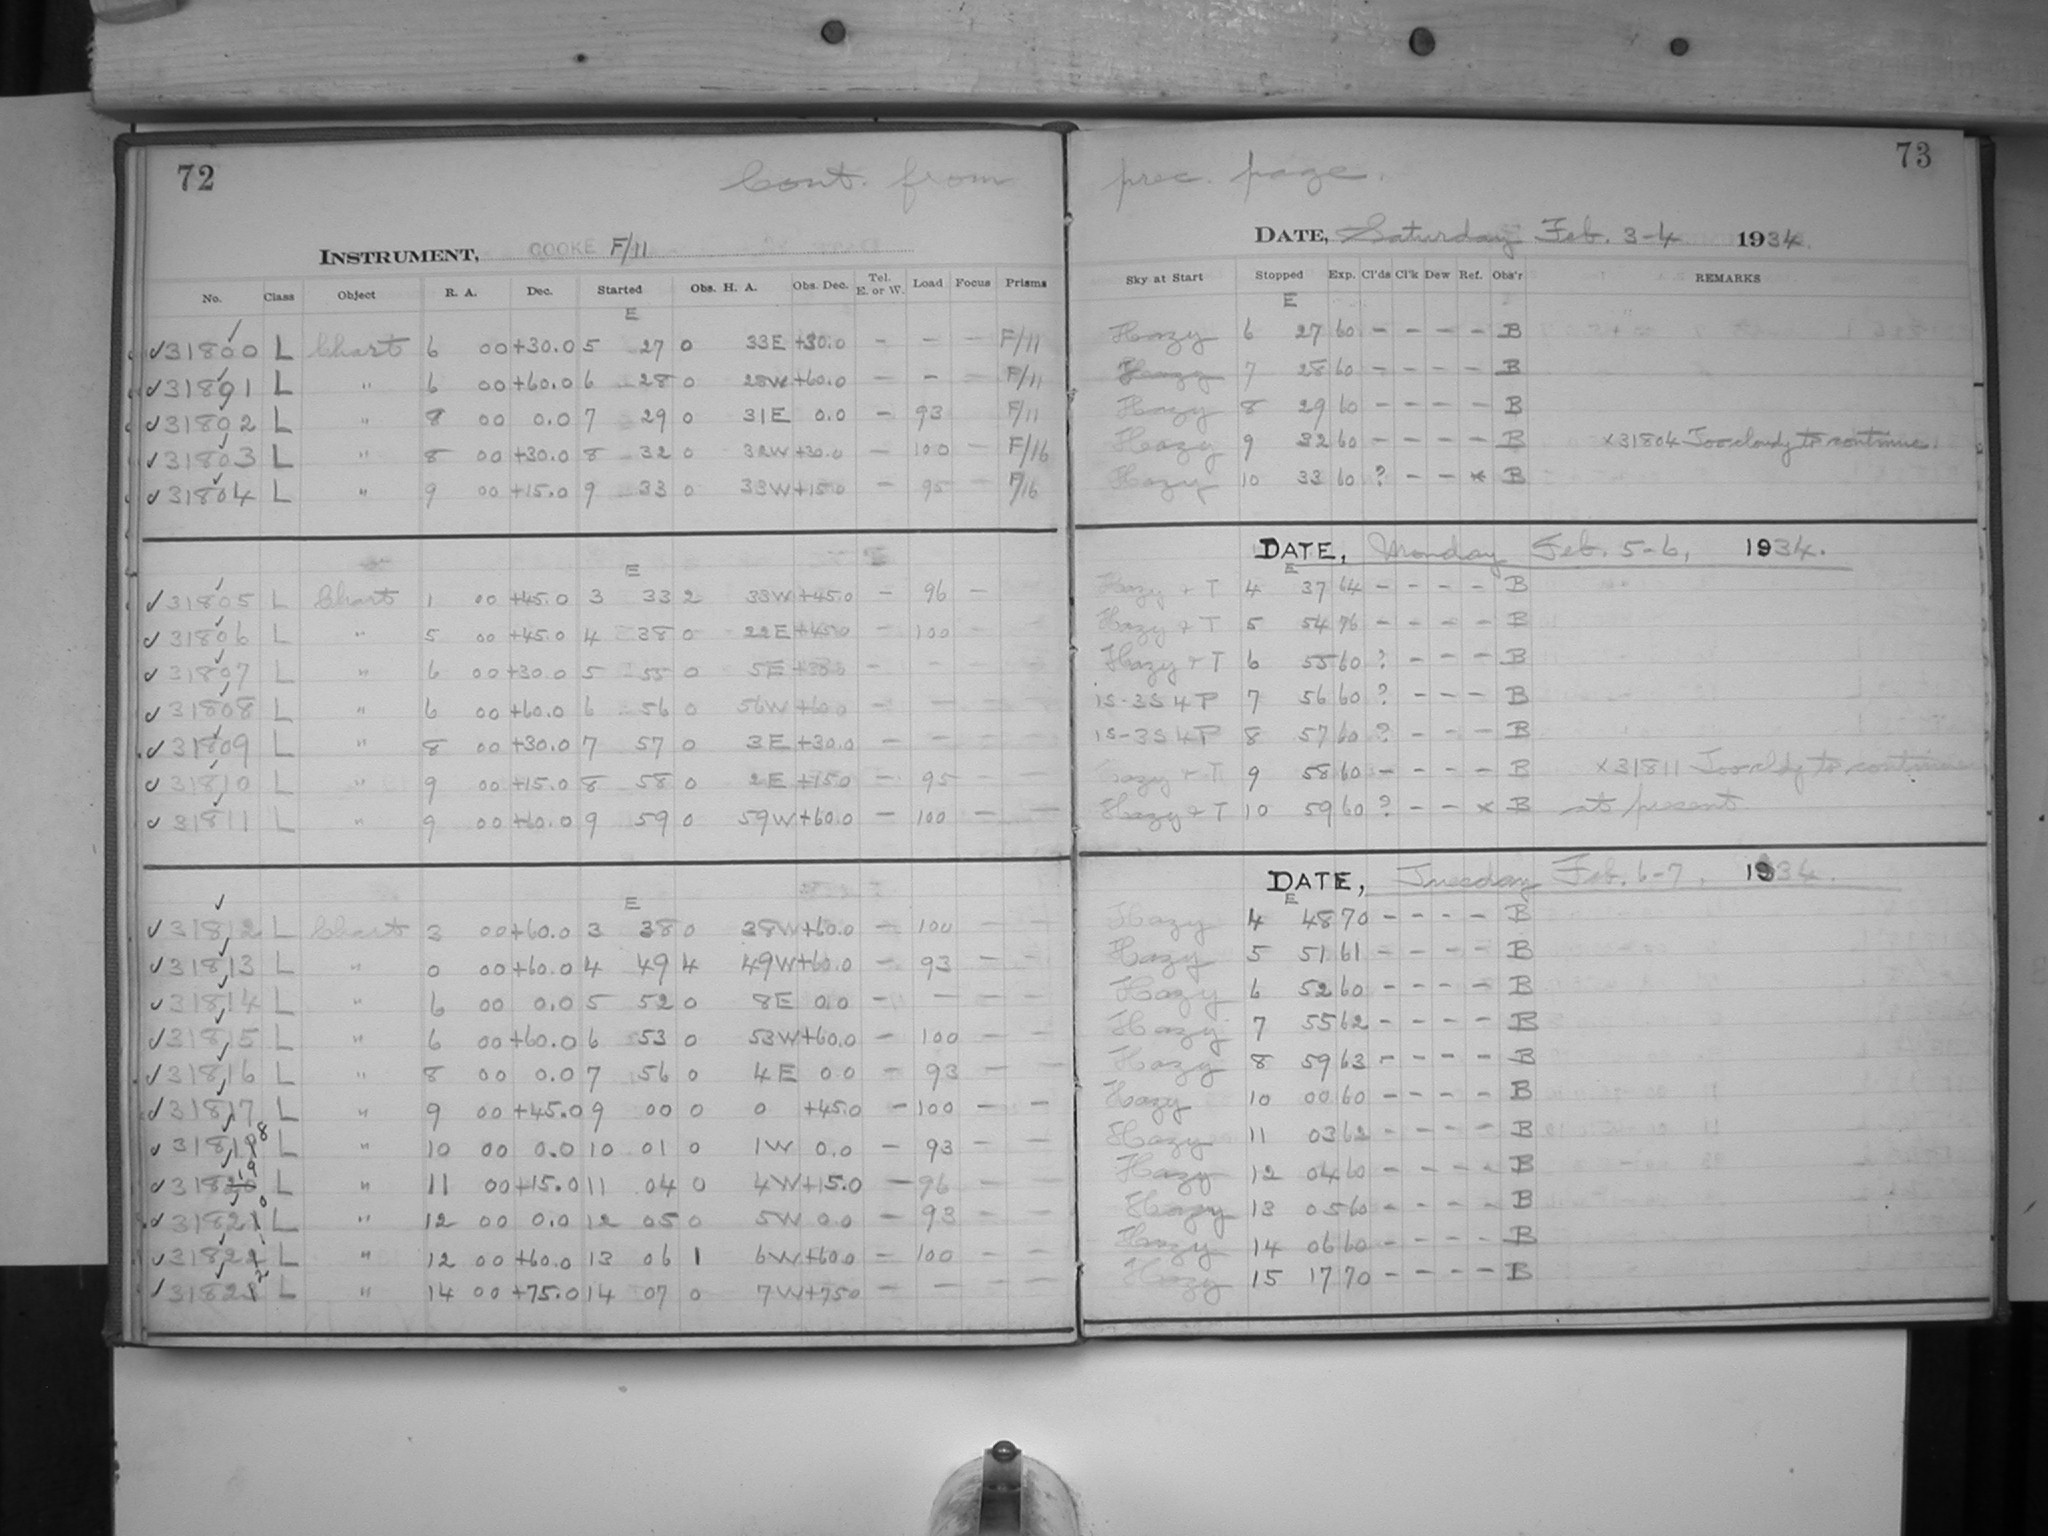 72
Cont. from
INSTRUMENT, COOKE F/11
No. Class Object R. A. Dec. Started Obs. H. A. Obs. Dec. Tel. E. or W. Load Focus Prisms
E
31800 L Chart 6 00 +30.0 5 27 0 33E +30.0 - - - F/11
31801 L " 6 00 +60.0 6 28 0 28W +60.0 - - F/11
31802 L " 8 00 0.0 7 29 0 31E 0.0 - 93 F/11
31803 L " 8 00 +30.0 8 32 0 32W +30.0 - 100 - F/16
31804 L " 9 00 +15.0 9 33 0 33W +15.0 - 95 - F/16
E
31805 L Chart 1 00 +45.0 3 33 2 33W +45.0 - 96 -
31806 L " 5 00 +45.0 4 38 0 22E +45.0 - 100 - -
31807 L " 6 00 +30.0 5 55 0 5E +30.0 - - - -
31808 L " 6 00 +60.0 6 56 0 56W +60.0 - - - -
31809 L " 8 00 +30.0 7 57 0 3E +30.0 - - - -
31810 L " 9 00 +15.0 8 58 0 2E +15.0 - 95 - -
31811 L " 9 00 +60.0 9 59 0 59W +60.0 - 100 - -
E
31812 L Chart 3 00 +60.0 3 38 0 38W +60.0 - 100 - -
31813 L " 0 00 +60.0 4 49 4 49W +60.0 - 93 - -
31814 L " 6 00 0.0 5 52 0 8E 0.0 - - - -
31815 L " 6 00 +60.0 6 53 0 53W +60.0 - 100 - -
31816 L " 8 00 0.0 7 56 0 4E 0.0 - 93 - -
31817 L " 9 00 +45.0 9 00 0 0 +45.0 - 100 - -
31818 L " 10 00 0.0 10 01 0 1W 0.0 - 93 - -
31819 L " 11 00 +15.0 11 04 0 4W +15.0 - 96 - -
31820 L " 12 00 0.0 12 05 0 5W 0.0 - 93 - -
31821 L " 12 00 +60.0 13 06 1 6W +60.0 - 100 - -
31822 L " 14 00 +75.0 14 07 0 7W +75.0 - - - -
73
prec. page.
DATE, Saturday Feb. 3-4 1934
Sky at Start Stopped Exp. Cl'ds Cl'k Dew Ref. Obs'r REMARKS
E
Hazy 6 27 60 - - - - B
Hazy 7 28 60 - - - - B
Hazy 8 29 60 - - - - B
Hazy 9 32 60 - - - - B x31804 Too cloudy to continue.
Hazy 10 33 60 ? - - x B
DATE, Monday Feb. 5-6, 1934.
E
Hazy + T 4 37 64 - - - - B
Hazy + T 5 54 76 - - - - B
Hazy + T 6 55 60 ? - - - B
1S-3S4P 7 56 60 ? - - - B
1S-3S4P 8 57 60 ? - - - B
Hazy + T 9 58 60 - - - - B x31811 Too cldy to continue
Hazy + T 10 59 60 ? - - x B at present
DATE, Tuesday Feb. 6-7, 1934.
E
Hazy 4 48 70 - - - - B
Hazy 5 51 61 - - - - B
Hazy 6 52 60 - - - - B
Hazy 7 55 62 - - - - B
Hazy 8 59 63 - - - - B
Hazy 10 00 60 - - - - B
Hazy 11 03 62 - - - - B
Hazy 12 04 60 - - - - B
Hazy 13 05 60 - - - - B
Hazy 14 06 60 - - - - B
Hazy 15 17 70 - - - - B